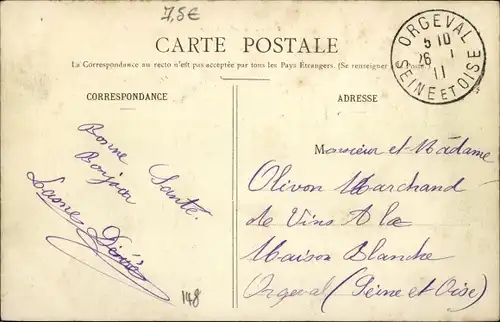 7,5€
CARTE POSTALE
La Correspondance au recto n'est pas acceptée par tous les Pays Étrangers. (Se renseigner à la Poste)
ORGEVAL
5 10
26 - 1
11
SEINE ET OISE
CORRESPONDANCE
Bonne Santé.
Bonjour
148
ADRESSE
Monsieur et Madame
Olivon Marchand
de Vins A la
Maison Blanche
Orgeval (Seine et Oise)